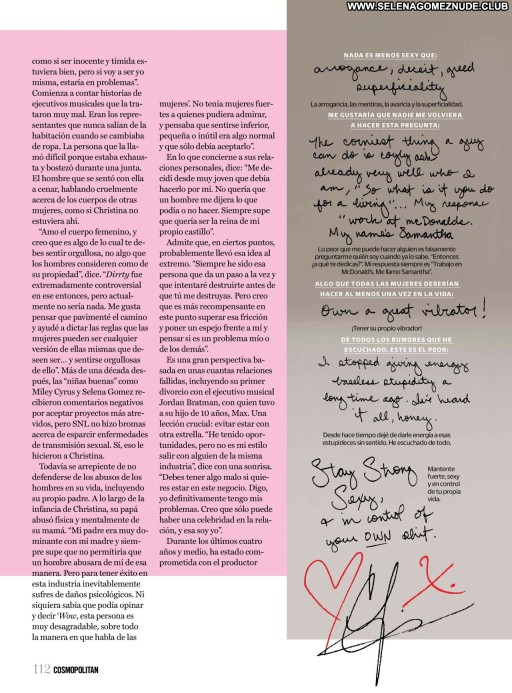 WWW.SELENAGOMEZNUDE.CLUB
como si ser inocente y tímida es-
tuviera bien, pero si voy a ser yo
misma, estaría en problemas”.
Comienza a contar historias de
ejecutivos musicales que la tra-
taron muy mal. Eran los repre-
sentantes que nunca salían de la
habitación cuando se cambiaba
de ropa. La persona que la lla-
mó difícil porque estaba exhaus-
ta y bostezó durante una junta.
El hombre que se sentó con ella
a cenar, hablando cruelmente
acerca de los cuerpos de otras
mujeres, como si Christina no
estuviera ahí.
“Amo el cuerpo femenino, y
creo que es algo de lo cual te de-
bes sentir orgullosa, no algo que
los hombres consideren como de
su propiedad”, dice. “Dirrty fue
extremadamente controversial
en ese entonces, pero actual-
mente no sería nada. Me gusta
pensar que pavimenté el camino
y ayudé a dictar las reglas que las
mujeres pueden ser cualquier
versión de ellas mismas que de-
seen ser... y sentirse orgullosas
de ello”. Más de una década des-
pués, las “niñas buenas” como
Miley Cyrus y Selena Gomez re-
cibieron comentarios negativos
por aceptar proyectos más atre-
vidos, pero SNL no hizo bromas
acerca de esparcir enfermedades
de transmisión sexual. Sí, eso le
hicieron a Christina.
Todavía se arrepiente de no
defenderse de los abusos de los
hombres en su vida, incluyendo
su propio padre. A lo largo de la
infancia de Christina, su papá
abusó física y mentalmente de
su mamá. “Mi padre era muy do-
minante con mi madre y siem-
pre supe que no permitiría que
un hombre abusara de mí de esa
manera. Pero para tener éxito en
esta industria inevitablemente
sufres de daños psicológicos. Ni
siquiera sabía que podía opinar
y decir ‘Wow, esta persona es
muy desagradable, sobre todo
la manera en que habla de las
mujeres’. No tenía mujeres fuer-
tes a quienes pudiera admirar,
y pensaba que sentirse inferior,
pequeña o inútil era algo normal
y que sólo debía aceptarlo”.
En lo que concierne a sus rela-
ciones personales, dice: “Me de-
cidí desde muy joven que debía
hacerlo por mí. No quería que
un hombre me dijera lo que
podía o no hacer. Siempre supe
que quería ser la reina de mi
propio castillo”.
Admite que, en ciertos puntos,
probablemente llevó esa idea al
extremo. “Siempre he sido esa
persona que da un paso a la vez y
que intentaré destruirte antes de
que tú me destruyas. Pero creo
que es más recompensante en
este punto superar esa fricción
y poner un espejo frente a mí y
pensar si es un problema mío o
de los demás”.
Es una gran perspectiva ba-
sada en unas cuantas relaciones
fallidas, incluyendo su primer
divorcio con el ejecutivo musical
Jordan Bratman, con quien tuvo
a su hijo de 10 años, Max. Una
lección crucial: evitar estar con
otra estrella. “He tenido opor-
tunidades, pero no es mi estilo
salir con alguien de la misma
industria”, dice con una sonrisa.
“Debes tener algo malo si quie-
res estar en este negocio. Digo,
yo definitivamente tengo mis
problemas. Creo que sólo puede
haber una celebridad en la rela-
ción, y esa soy yo”.
Durante los últimos cuatro
años y medio, ha estado com-
prometida con el productor
NADA ES MENOS SEXY QUE:
arrogance, deceit, greed
superficiality
La arrogancia, las mentiras, la avaricia y la superficialidad.
ME GUSTARÍA QUE NADIE ME VOLVIERA
A HACER ESTA PREGUNTA:
The corniest thing a guy
can do is coyly ask
already very well who I
am, “So what is it you do
for a living”... My response
“work at mcDonalds.
My name's Samantha
Lo peor que me puede hacer alguien es falsamente
preguntarme quién soy cuando ya lo sabe. “Entonces
¿a qué te dedicas?”. Mi respuesta siempre es “Trabajo en
McDonald’s. Me llamo Samantha”.
ALGO QUE TODAS LAS MUJERES DEBERÍAN
HACER AL MENOS UNA VEZ EN LA VIDA:
Own a great vibrator!
¡Tener su propio vibrador!
DE TODOS LOS RUMORES QUE HE
ESCUCHADO, ESTE ES EL PEOR:
I stopped giving energy
baseless stupidity a
long time ago. I've heard
it all, honey.
Desde hace tiempo dejé de darle energía a esas
estupideces sin sentido. He escuchado de todo.
Stay Strong
Sexy,
& in control of
your OWN shit.
Mantente
fuerte, sexy
y en control
de tu propia
vida.
112 COSMOPOLITAN